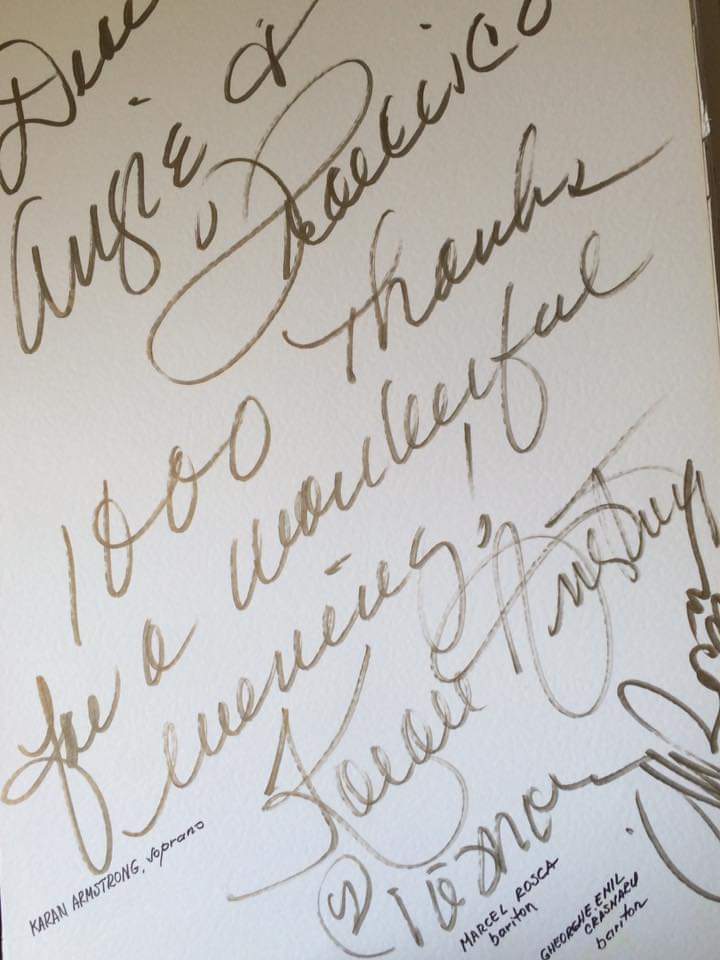 Dear
Angie &
Francesco
1000 Thanks
for a wonderful
evening!
Karan Armstrong
KARAN ARMSTRONG, soprano
MARCEL ROSCA
bariton
GHEORGHE-EMIL
CRASNARU
bariton